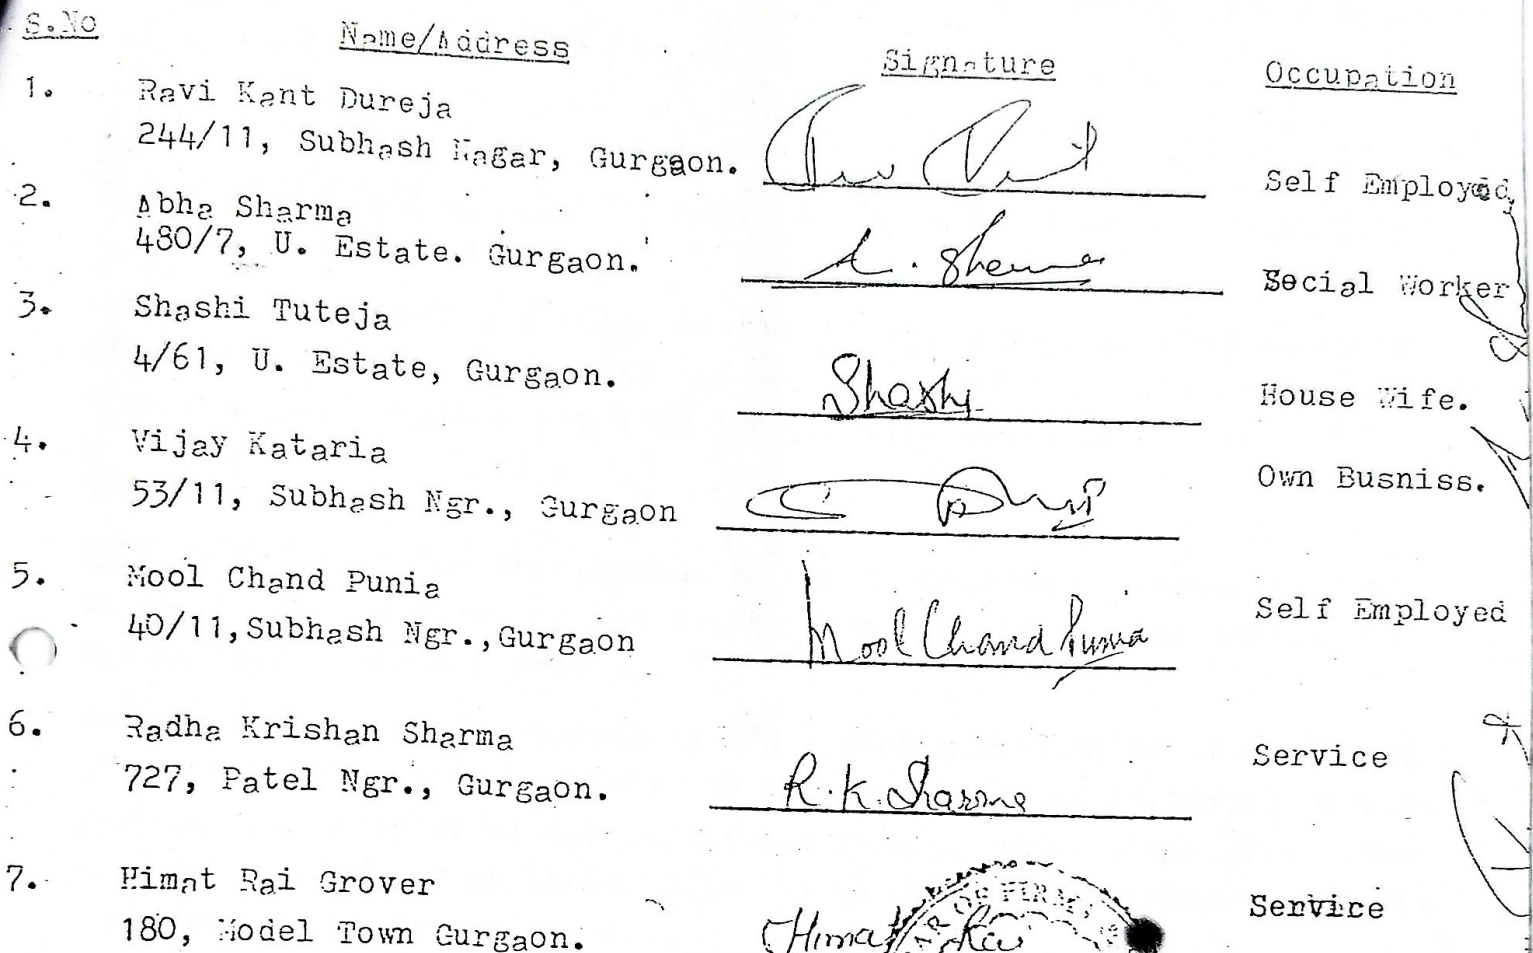 S.No Name/Address Signature Occupation
1. Ravi Kant Dureja
244/11, Subhash Nagar, Gurgaon. Self Employed
2. Abha Sharma
480/7, U. Estate. Gurgaon. A. Sharma Social Worker
3. Shashi Tuteja
4/61, U. Estate, Gurgaon. Shashi House Wife.
4. Vijay Kataria
53/11, Subhash Ngr., Gurgaon Own Busniss.
5. Mool Chand Punia
40/11,Subhash Ngr.,Gurgaon Mool Chand Punia Self Employed
6. Radha Krishan Sharma
727, Patel Ngr., Gurgaon. R.K. Sharma Service
7. Himat Rai Grover
180, Model Town Gurgaon. Himat Rai Service
OF FIRMS